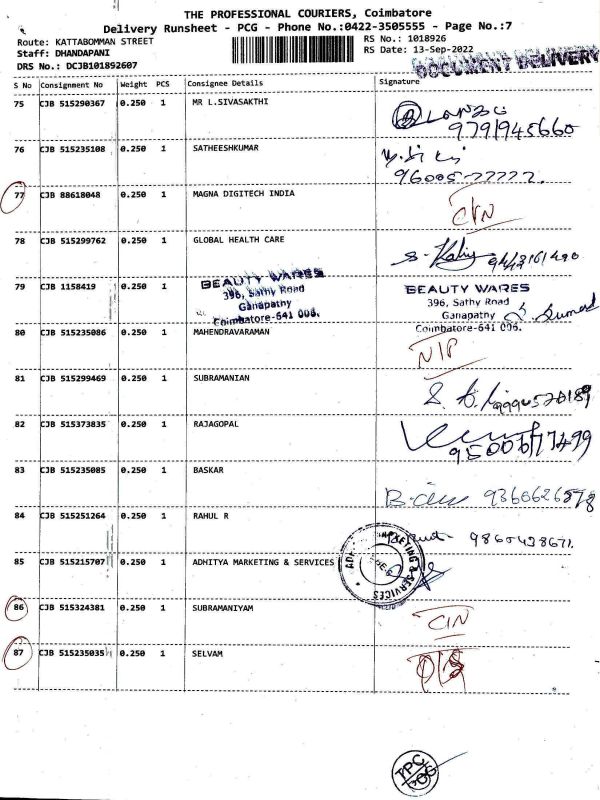 THE PROFESSIONAL COURIERS, Coimbatore
Delivery Runsheet - PCG - Phone No.:0422-3505555 - Page No.:7
Route: KATTABOMMAN STREET
Staff: DHANDAPANI
DRS No.: DCJB101892607
RS No.: 1018926
RS Date: 13-Sep-2022
DOCUMENT DELIVERY
S No Consignment No Weight PCS Consignee Details Signature
75 CJB 515290367 0.250 1 MR L.SIVASAKTHI
9791945660
76 CJB 515235108 0.250 1 SATHEESHKUMAR
77 CJB 88618048 0.250 1 MAGNA DIGITECH INDIA
78 CJB 515299762 0.250 1 GLOBAL HEALTH CARE
79 CJB 1158419 0.250 1
BEAUTY WARES
396, Sathy Road
Ganapathy
Coimbatore-641 006.
BEAUTY WARES
396, Sathy Road
Ganapathy
Coimbatore-641 006.
80 CJB 515235086 0.250 1 MAHENDRAVARAMAN
81 CJB 515299469 0.250 1 SUBRAMANIAN
82 CJB 515373835 0.250 1 RAJAGOPAL
83 CJB 515235085 0.250 1 BASKAR
84 CJB 515251264 0.250 1 RAHUL R
85 CJB 515215707 0.250 1 ADHITYA MARKETING & SERVICES
86 CJB 515324381 0.250 1 SUBRAMANIYAM
87 CJB 515235035 0.250 1 SELVAM
TPC